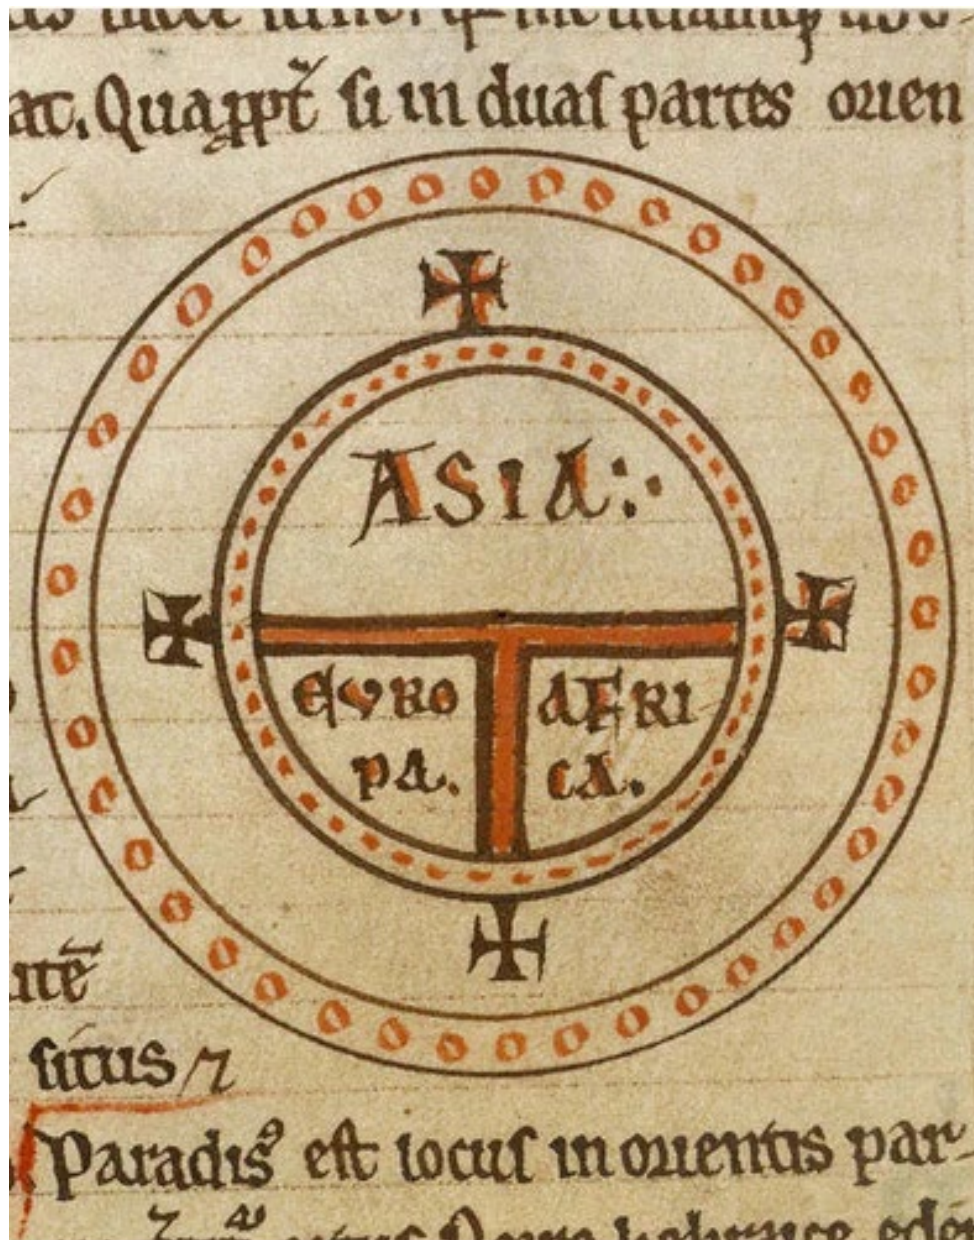 at. Quaꝓpt̄ si in duas partes orien
ASIA:·
EVRO
PA.
AFRI
CA.
itē
situs ⁊
Paradisꝰ est locus in orientis par-